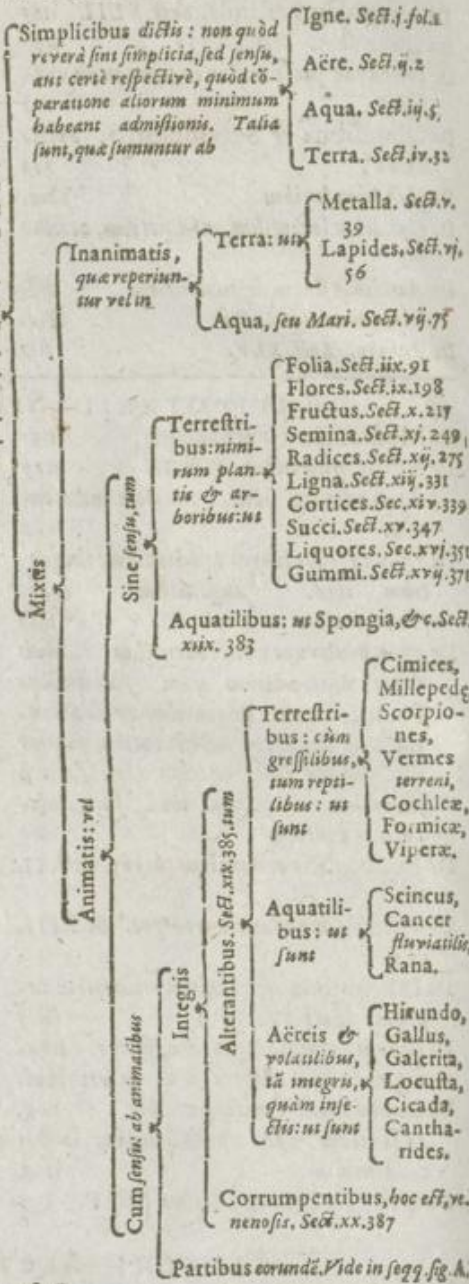 Simplicibus dictis: non quòd
reverà sint simplicia, sed sensu,
aut certè respectivè, quòd cō-
paratione aliorum minimum
habeant admistionis. Talia
sunt, quæ sumuntur ab
Igne. Sect.j.fol.1
Aëre. Sect.ij.2
Aqua. Sect.iij.5
Terra. Sect.iv.32
Mixtis
Inanimatis,
quæ reperiun-
tur vel in
Terra: ut
Metalla. Sect.v.
39
Lapides. Sect.vj.
56
Aqua, seu Mari. Sect.vij.75
Animatis: vel
Sine sensu, tum
Terrestri-
bus: nimi-
rum plan-
tis & ar-
boribus: ut
Folia. Sect.iix.91
Flores. Sect.ix.198
Fructus. Sect.x.217
Semina. Sect.xj.249
Radices. Sect.xij.275
Ligna. Sect.xiij.331
Cortices. Sec.xiv.339
Succi. Sect.xv.347
Liquores. Sec.xvj.351
Gummi. Sect.xvij.371
Aquatilibus: ut Spongia, &c. Sect.
xiix. 383
Cum sensu: ab animalibus
Integris
Alterantibus. Sect.xix.385, tum
Terrestri-
bus: cùm
gressilibus,
tum repti-
libus: ut
sunt
Cimices,
Millepedę
Scorpio-
nes,
Vermes
terreni,
Cochleæ,
Formicæ,
Viperæ.
Aquatili-
bus: ut
sunt
Scincus,
Cancer
fluviatilis,
Rana.
Aëreis &
volatilibus,
tā integris,
quàm inse-
ctis: ut sunt
Hirundo,
Gallus,
Galerita,
Locusta,
Cicada,
Cantha-
rides.
Corrumpentibus, hoc est, ve-
nenosis. Sect.xx.387
Partibus eorundē. Vide in seqq. sig. A.